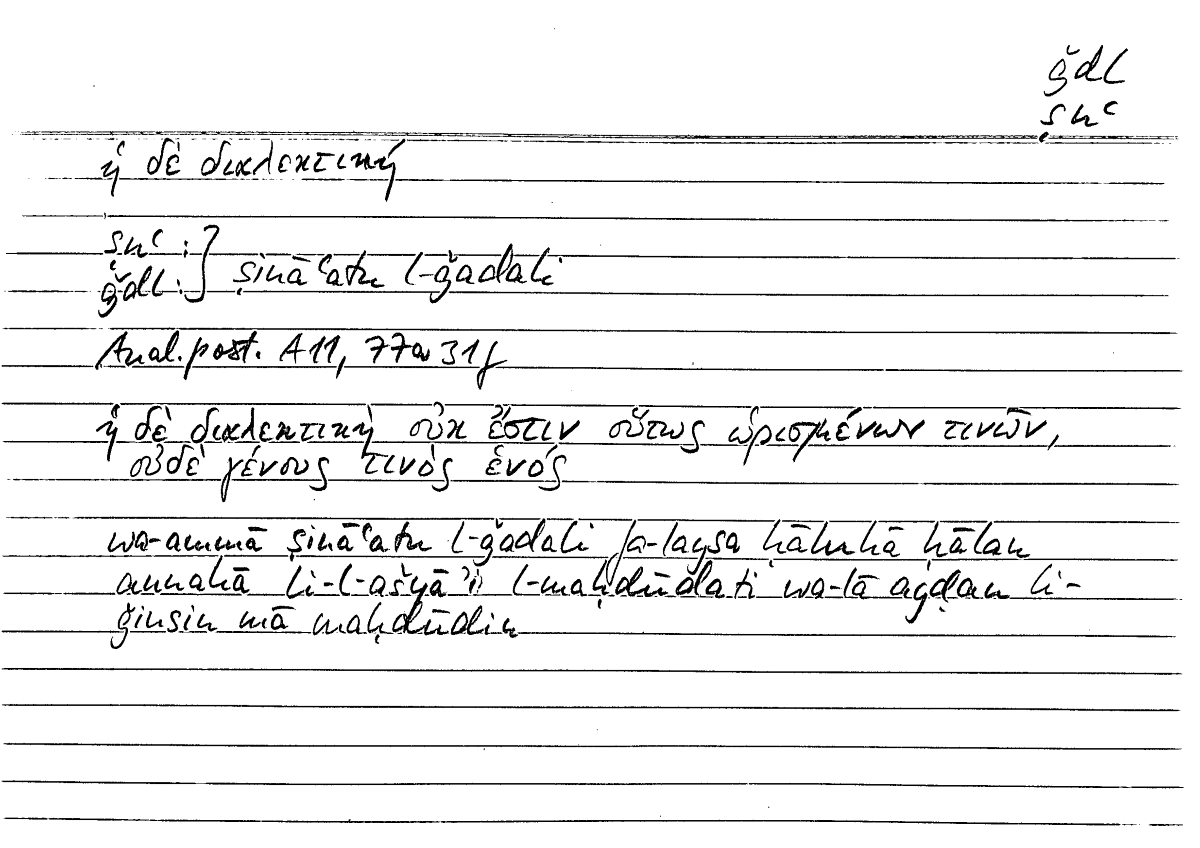 ǧdl
ṣnʿ
ἡ δὲ διαλεκτική
ṣnʿ :
ǧdl : } ṣināʿatu l-ǧadali
Anal. post. A 11, 77a 31f
ἡ δὲ διαλεκτικὴ οὐκ ἔστιν οὕτως ὡρισμένων τινῶν,
οὐδὲ γένους τινὸς ἑνός
wa-ammā ṣināʿatu l-ǧadali fa-laysa ḥāluhā ḥālan
annahā li-l-ašyāʾi l-maḥdūdati wa-lā ayḍan li-
ǧinsin mā maḥdūdin